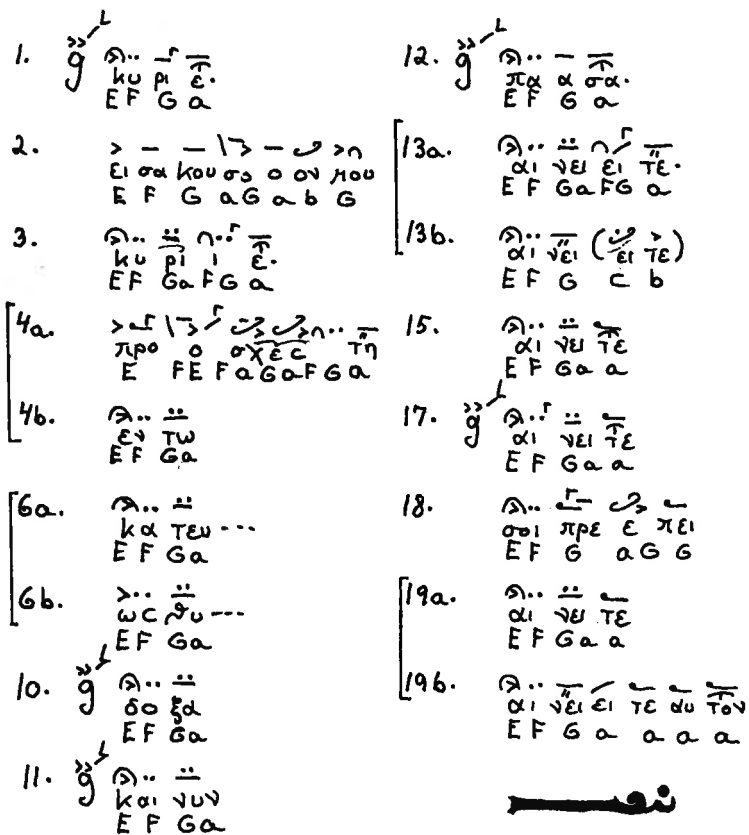 1. κυ ρι ε.
E F G a
2. ει σα κου σο ο ον μου
E F G a G a b G
3. κυ ρι ι ε.
E F Ga F G a
4a. προ ο σχες τη
E F E F a G a F G a
4b. εν τω
E F Ga
6a. κα τευ ---
E F Ga
6b. ως θυ ---
E F Ga
10. δο ξα
E F Ga
11. και νυν
E F Ga
12. πα α σα.
E F G a
13a. αι νει ει τε.
E F Ga FG a
13b. αι νει (ει τε)
E F G c b
15. αι νει τε
E F Ga a
17. αι νει τε
E F Ga a
18. σοι πρε ε πει
E F G a G G
19a. αι νει τε
E F Ga a
19b. αι νει ει τε αυ τον
E F G a a a a